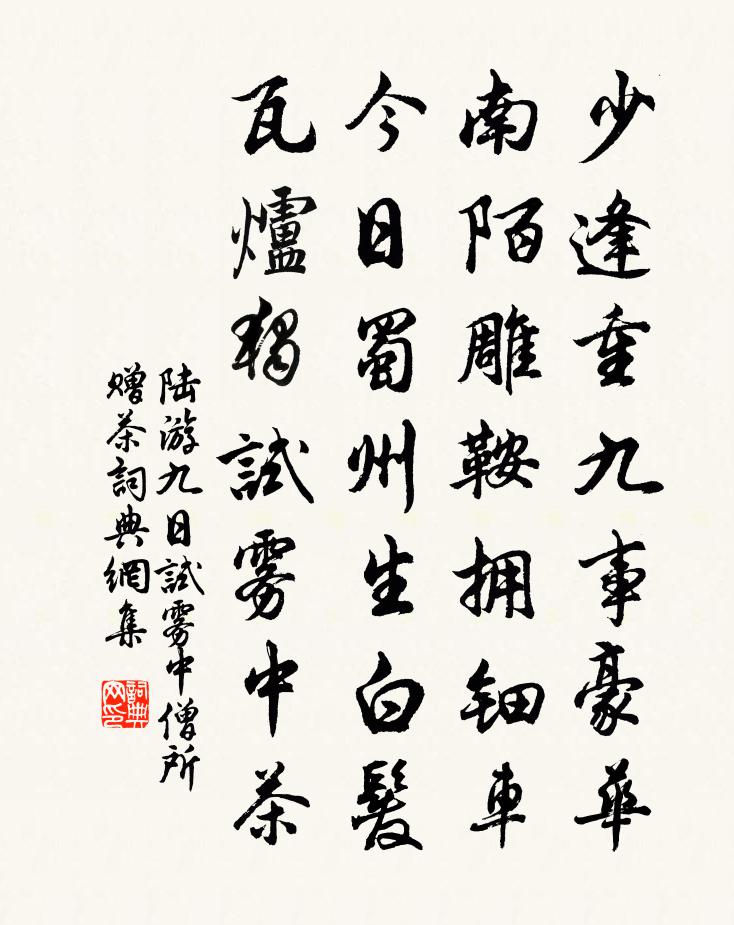 少逢重九事豪華
南陌雕鞍拥钿車
今日蜀州生白髮
瓦爐獨試霧中茶
陆游九日試雾中僧所
贈茶詞典網集
詞典网印